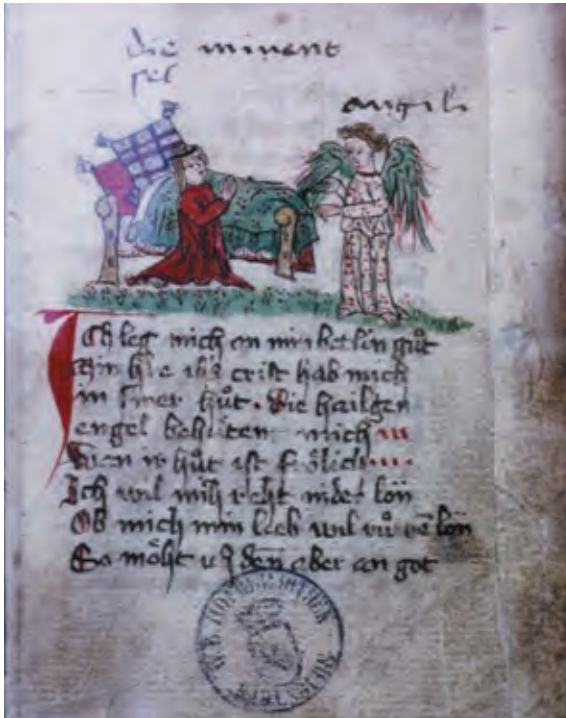 die minent
sel
angili
Ich leg mich an min betlin gůt
min hre ihs crist hab mich
in siner hůt · Die hailgen
engel behůten mich
Wen ir hůt ist frölich
Ich wil mich reht nider lon
Ob mich min lieb wil růwē lon
So möht ich den aber an got